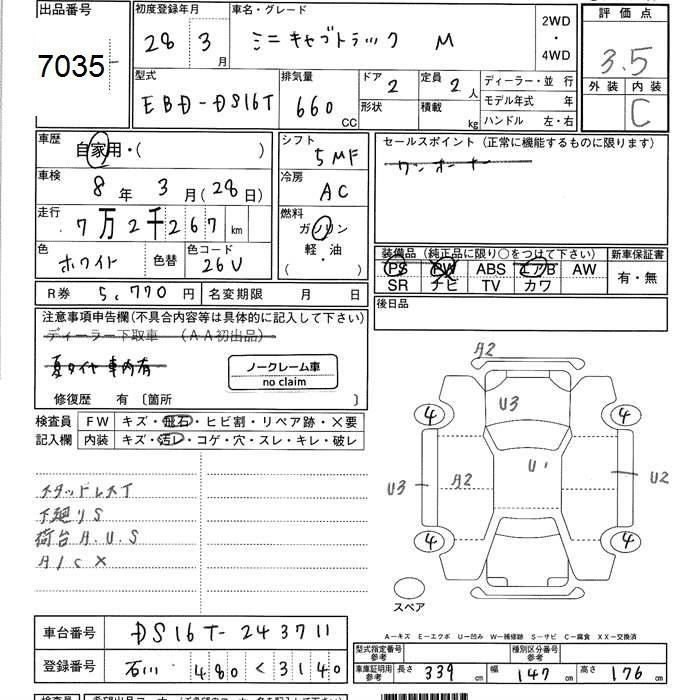 出品番号
7035
初度登録年月
28 3 月
車名・グレード
ミニキャブトラック M
2WD
・
4WD
評価点
3.5
外装 内装
C
型式
EBD-DS16T
排気量
660 CC
ドア 2
形状
定員 2 人
積載 kg
ディーラー・並 行
モデル年式 年
ハンドル 左・右
車歴
自家用・( )
車検
8 年 3 月(28日)
走行
7万2千267 km
色
ホワイト
色替
色コード
26V
シフト
5MF
冷房
AC
燃料
ガソリン
軽・油
( )
セールスポイント(正常に機能するものに限ります)
ワンオーナー
装備品(純正品に限り○をつけて下さい)
新車保証書
PS PW ABS エアB AW
SR ナビ TV カワ
有・無
R券 5,770 円
名変期限 月 日
後日品
注意事項申告欄(不具合内容等は具体的に記入して下さい)
ディーラー下取車 (AA初出品)
夏タイヤ車内有
ノークレーム車
no claim
修復歴 有〔箇所 〕
検査員
記入欄
FW キズ・飛石・ヒビ割・リペア跡・×要
内装 キズ・汚レ・コゲ・穴・スレ・キレ・破レ
スタッドレスT
下廻りS
荷台A.U.S
A/C×
A2
U3
4 4
U3 A2 U' U2
4 4
スペア
車台番号 DS16T-243711
登録番号 石川 480 く 3140
A－キズ E－エクボ U－凹み W－補修跡 S－サビ C－腐食 XX－交換済
型式指定番号
参考
種別区分番号
参考
車庫証明用
参考
長さ 339 cm 幅 147 cm 高さ 176 cm
検査員